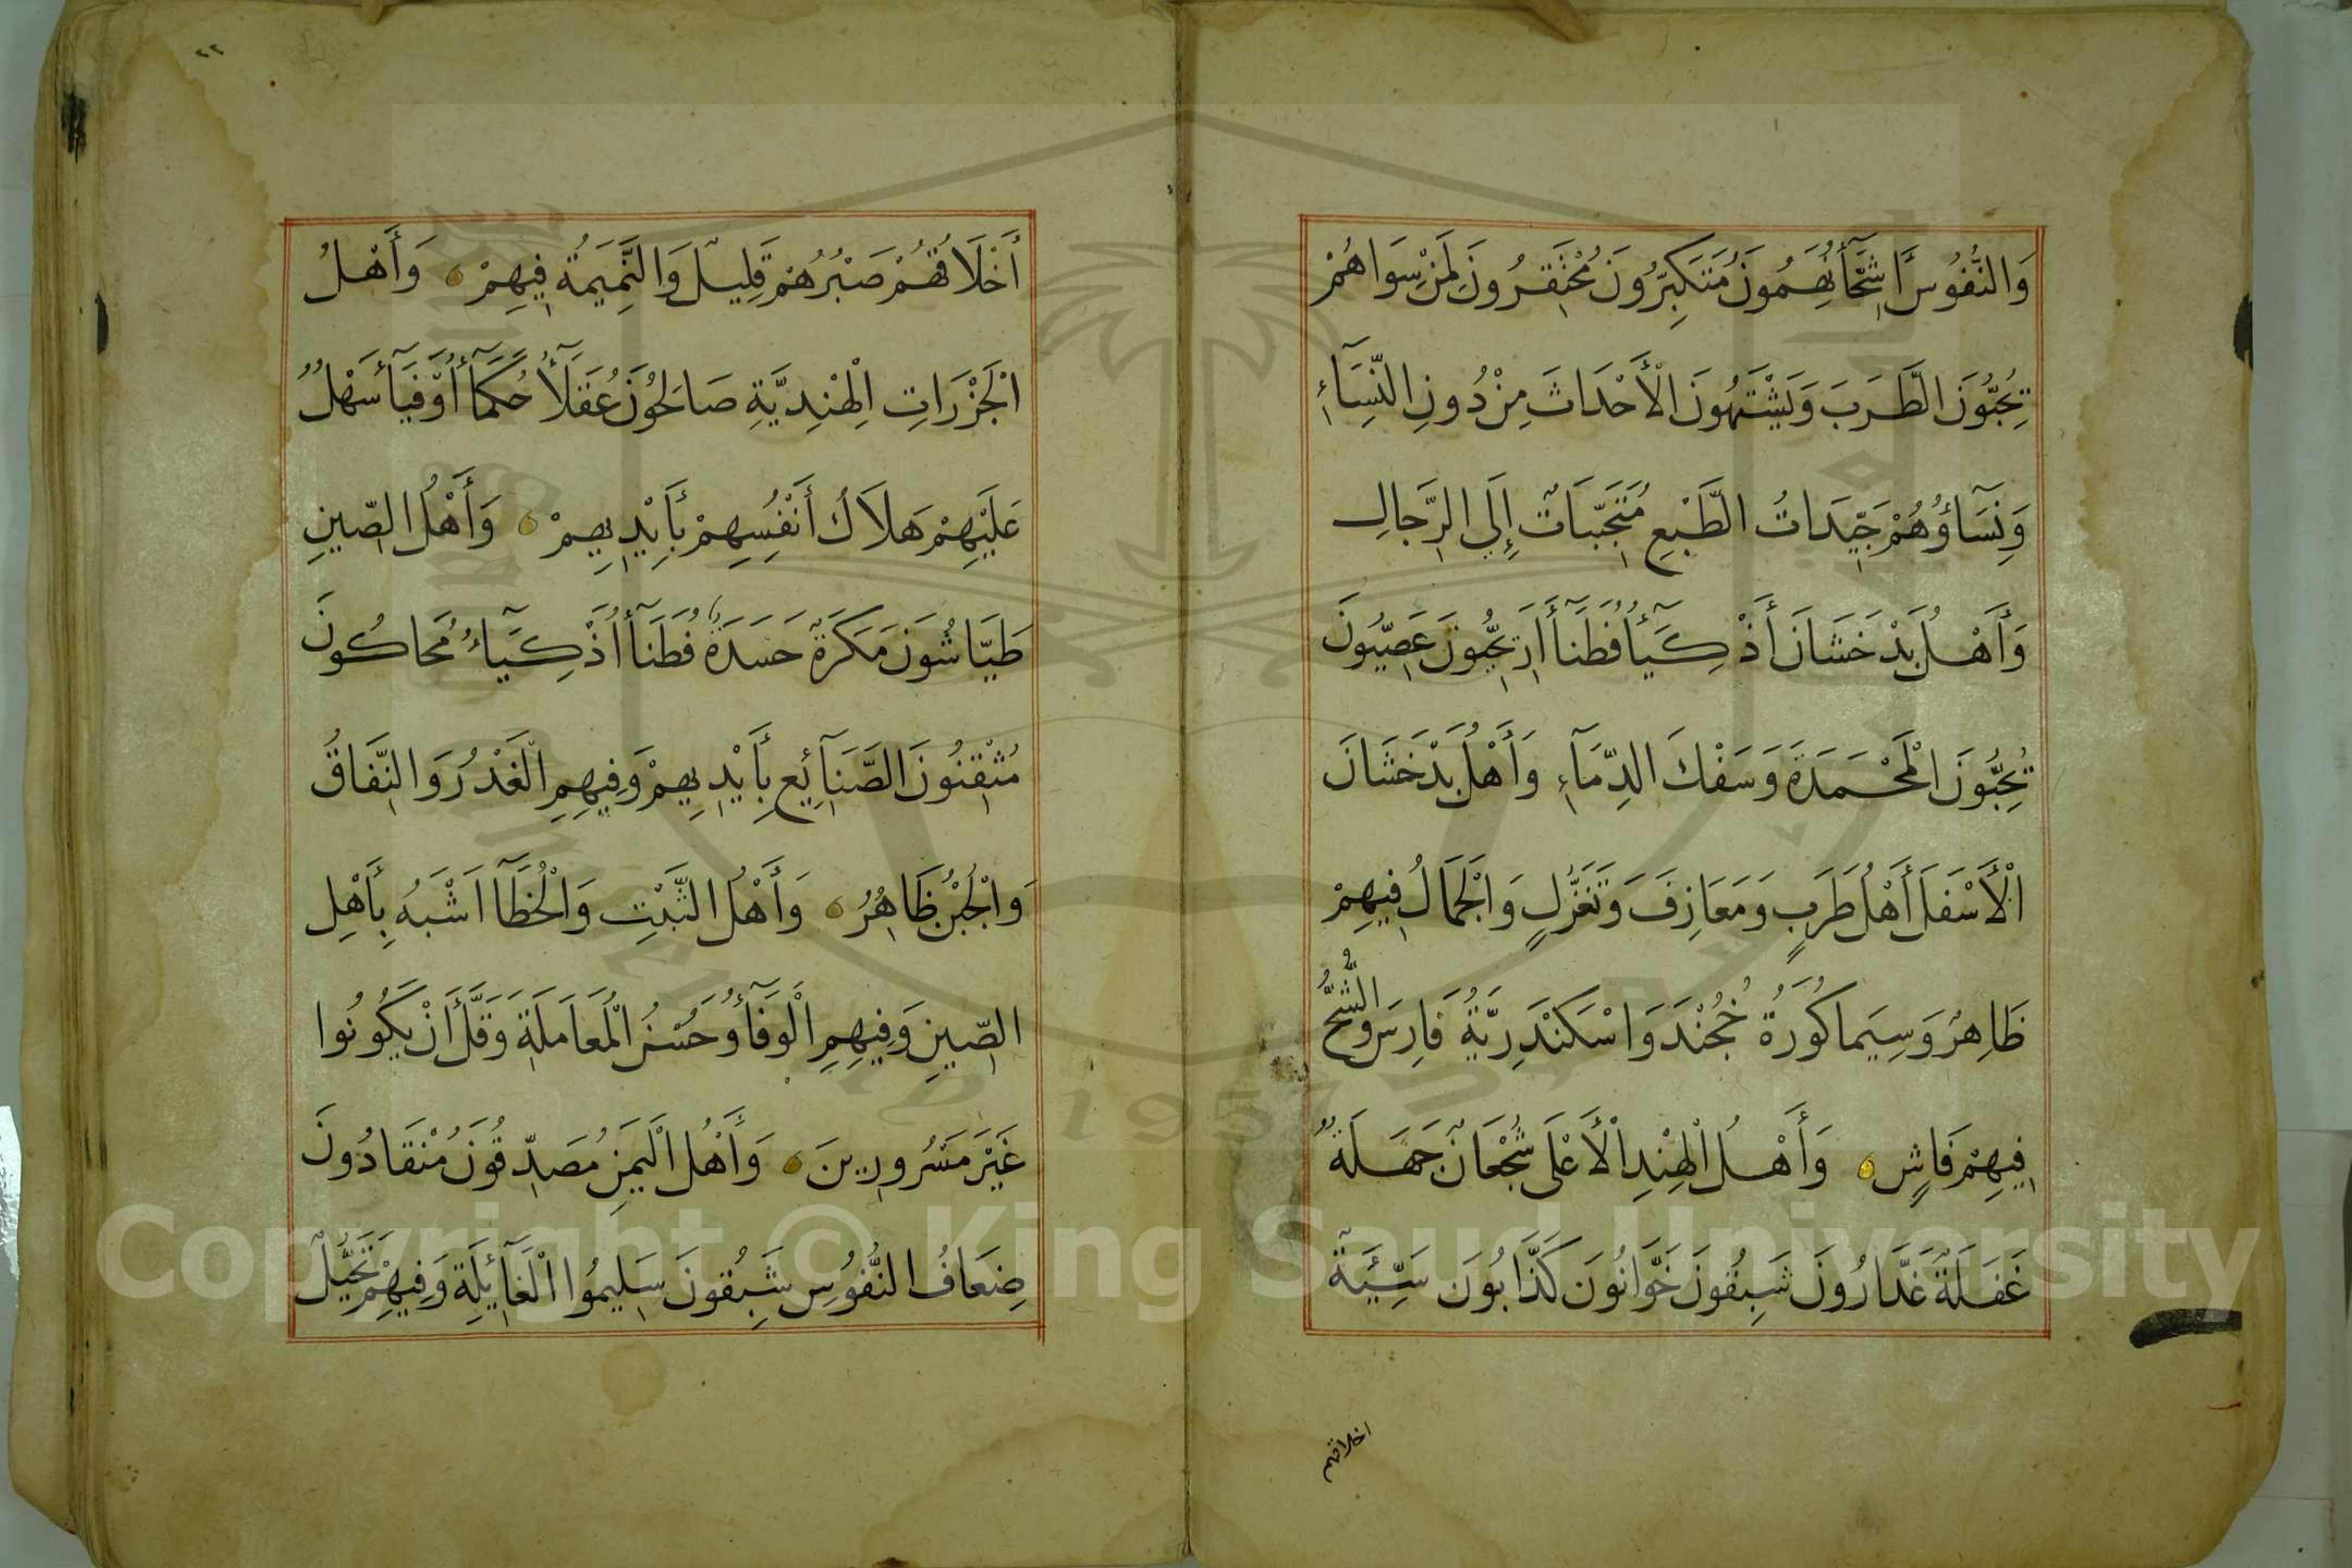 وَالنُّفُوسِ أَشِحَّآءُ نَهِمُونَ مُتَكَبِّرُونَ مُحْتَقِرُونَ لِمَنْ سِوَاهُمْ
يُحِبُّونَ الطَّرَبَ وَيَشْتَهُونَ الْأَحْدَاثَ مِنْ دُونِ النِّسَآءِ
وَنِسَاؤُهُمْ جَيِّدَاتُ الطَّبْعِ مُتَحَبِّبَاتٌ إِلَي الرِّجَالِ
وَأَهْلُ بَدْخَشَانَ أَذْكِيَآءُ فُطَنَآءُ أَرْيَحِيُّونَ عَصَبِيُّونَ
يُحِبُّونَ الْمَحْمَدَةَ وَسَفْكَ الدِّمَآءِ وَأَهْلُ بَدْخَشَانَ
الْأَسْفَلَ أَهْلُ طَرَبٍ وَمَعَازِفَ وَتَغَزُّلٍ وَالْجَمَالُ فِيهِمْ
ظَاهِرٌ وَسِيَما كُورَةُ خُجُنْدَ وَاسْكَنْدَرِيَّةُ فَارِسَ وَالشُّحُّ
فِيهِمْ فَاشٍ وَأَهْلُ الْهِنْدِ الْأَعْلَى شُجْعَانٌ جَهَلَةٌ
غَفَلَةٌ غَدَّارُونَ شَبِقُونَ خَوَّانُونَ كَذَّابُونَ سَيِّئَةٌ
اخلاقهم
٢٢
أَخْلَاقُهُمْ صَبْرُهُمْ قَلِيلٌ وَالنَّمِيمَةُ فِيهِمْ وَأَهْلُ
الْجَزْرَاتِ الْهِنْدِيَّةِ صَالِحُونَ عُقَلَآءُ حُكَمَآءُ أَوْفِيَآءُ سَهْلٌ
عَلَيْهِمْ هَلَاكُ أَنْفُسِهِمْ بِأَيْدِيهِمْ وَأَهْلُ الصِّينِ
طَيَّاشُونَ مَكَرَةٌ حَسَدَةٌ فُطَنَآءُ أَذْكِيَآءُ مُحَاكُونَ
مُتْقِنُونَ الصَّنَآئِعَ بِأَيْدِيهِمْ وَفِيهِمِ الْغَدْرُ وَالنِّفَاقُ
وَالْجُبْنُ ظَاهِرٌ وَأَهْلُ التِّبَّتِ وَالْخُطَّآ اَشْبَهُ بِأَهْلِ
الصِّينِ وَفِيهِمِ الْوَفَآءُ وَحُسْنُ الْمُعَامَلَةِ وَقَلَّ أَنْ يَكُونُوا
غَيْرَ مَسْرُورِينَ وَأَهْلُ الْيَمَنِ مُصَدِّقُونَ مُنْقَادُونَ
ضِعَافُ النُّفُوسِ شَبِقُونَ سَلِيمُوا الْغَآئِلَةِ وَفِيهِمْ تَخَيُّلٌ
Copyright © King Saud University
1957